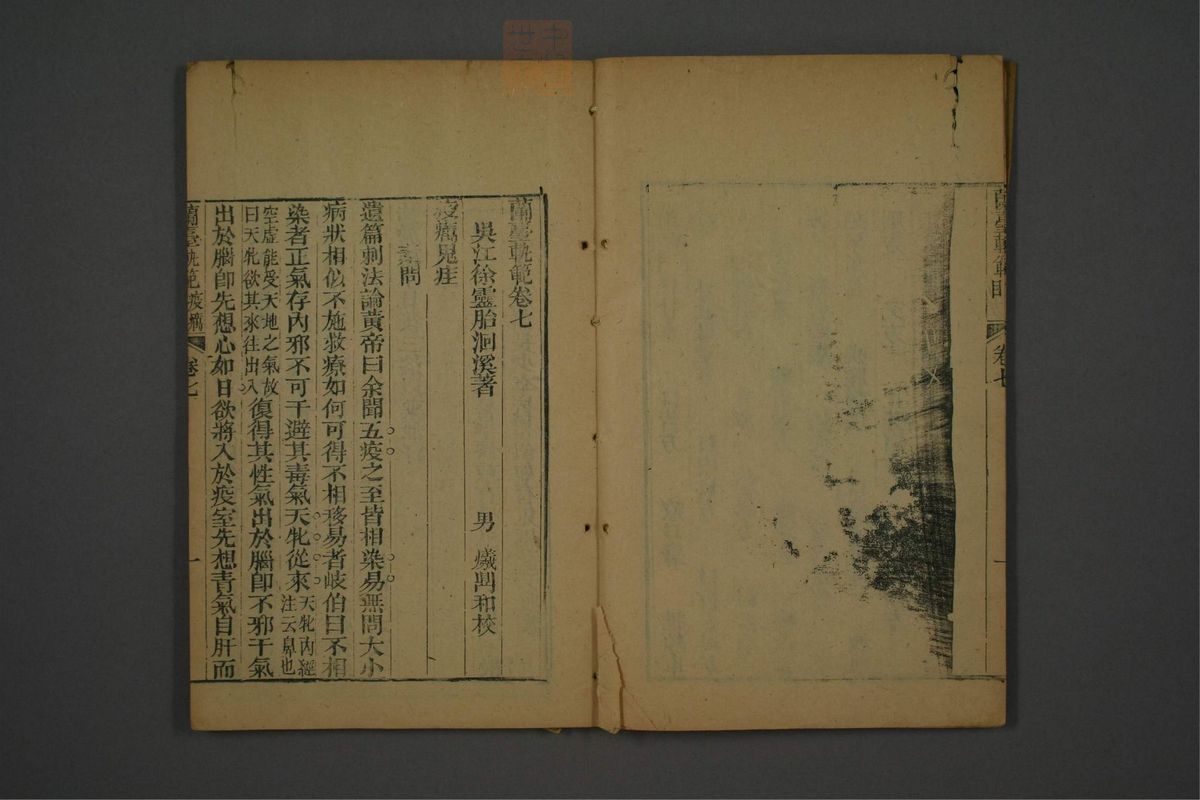 蘭臺軌範
卷七
一
蘭臺軌範卷七
吳江徐靈胎洄溪著 男 爔 和校
疫癘鬼疰
素問
遺篇刺法論黃帝曰余聞五疫之至皆相染易無問大小
病狀相似不施救療如何可得不相移易者岐伯曰不相
染者正氣存內邪不可干避其毒氣天牝從來天牝內經
注云鼻也
空虛能受天地之氣故
曰天牝欲其來往出入復得其性氣出於腦卽不邪干氣
出於腦卽先想心如日欲將入於疫室先想青氣自肝而
蘭臺軌範疫癘
卷七
一